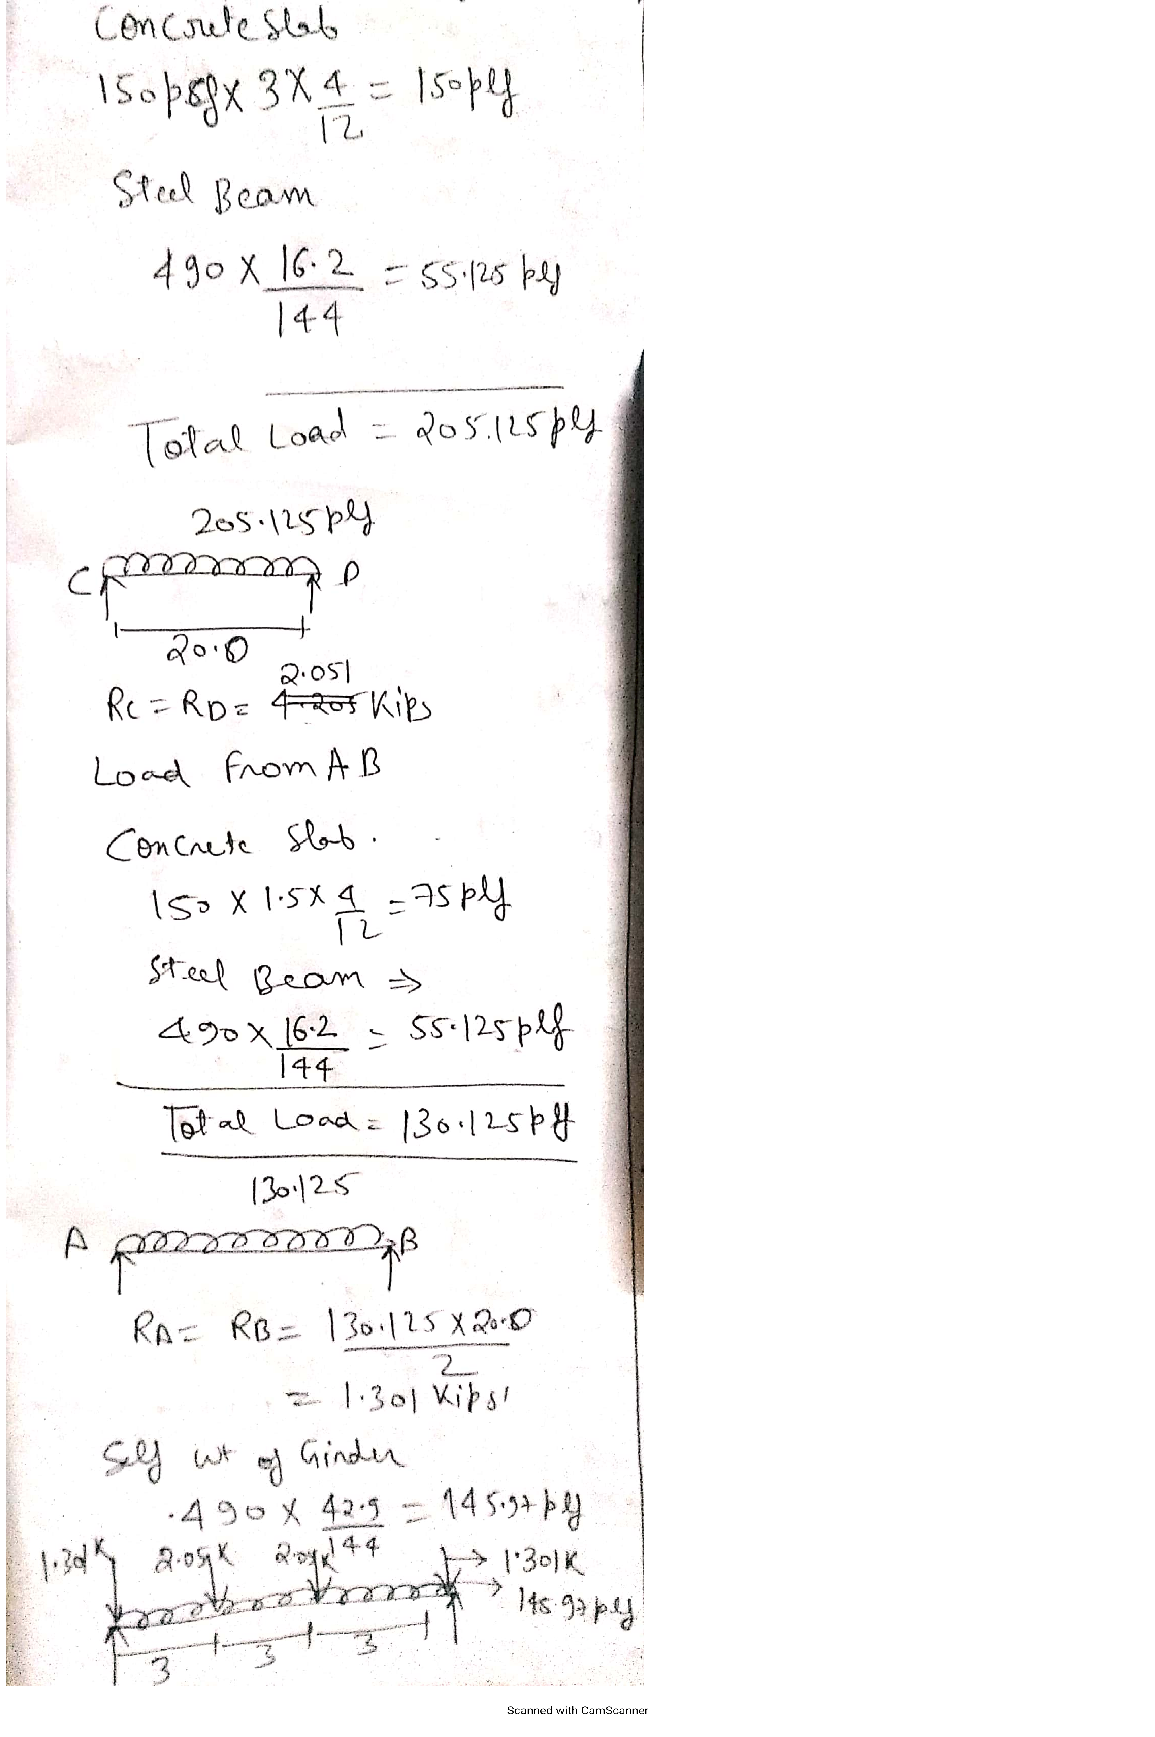 Concrete Slab
150psf x 3 x 4/12 = 150plf
Steel Beam
490 x 16.2/144 = 55.125 plf
Total Load = 205.125plf
205.125plf
C D
20.0
2.051
RC = RD = Kips
Load From AB
Concrete Slab.
150 x 1.5 x 4/12 = 75 plf
Steel Beam ⇒
490 x 16.2/144 = 55.125plf
Total Load = 130.125plf
130.125
A B
RA = RB = 130.125 x 20.0/2
= 1.301 Kips
Self wt of Girder
.490 x 42.9/144 = 145.97 plf
1.301K 2.051K 2.051K → 1.301K
→ 145.97 plf
3 3 3
Scanned with CamScanner